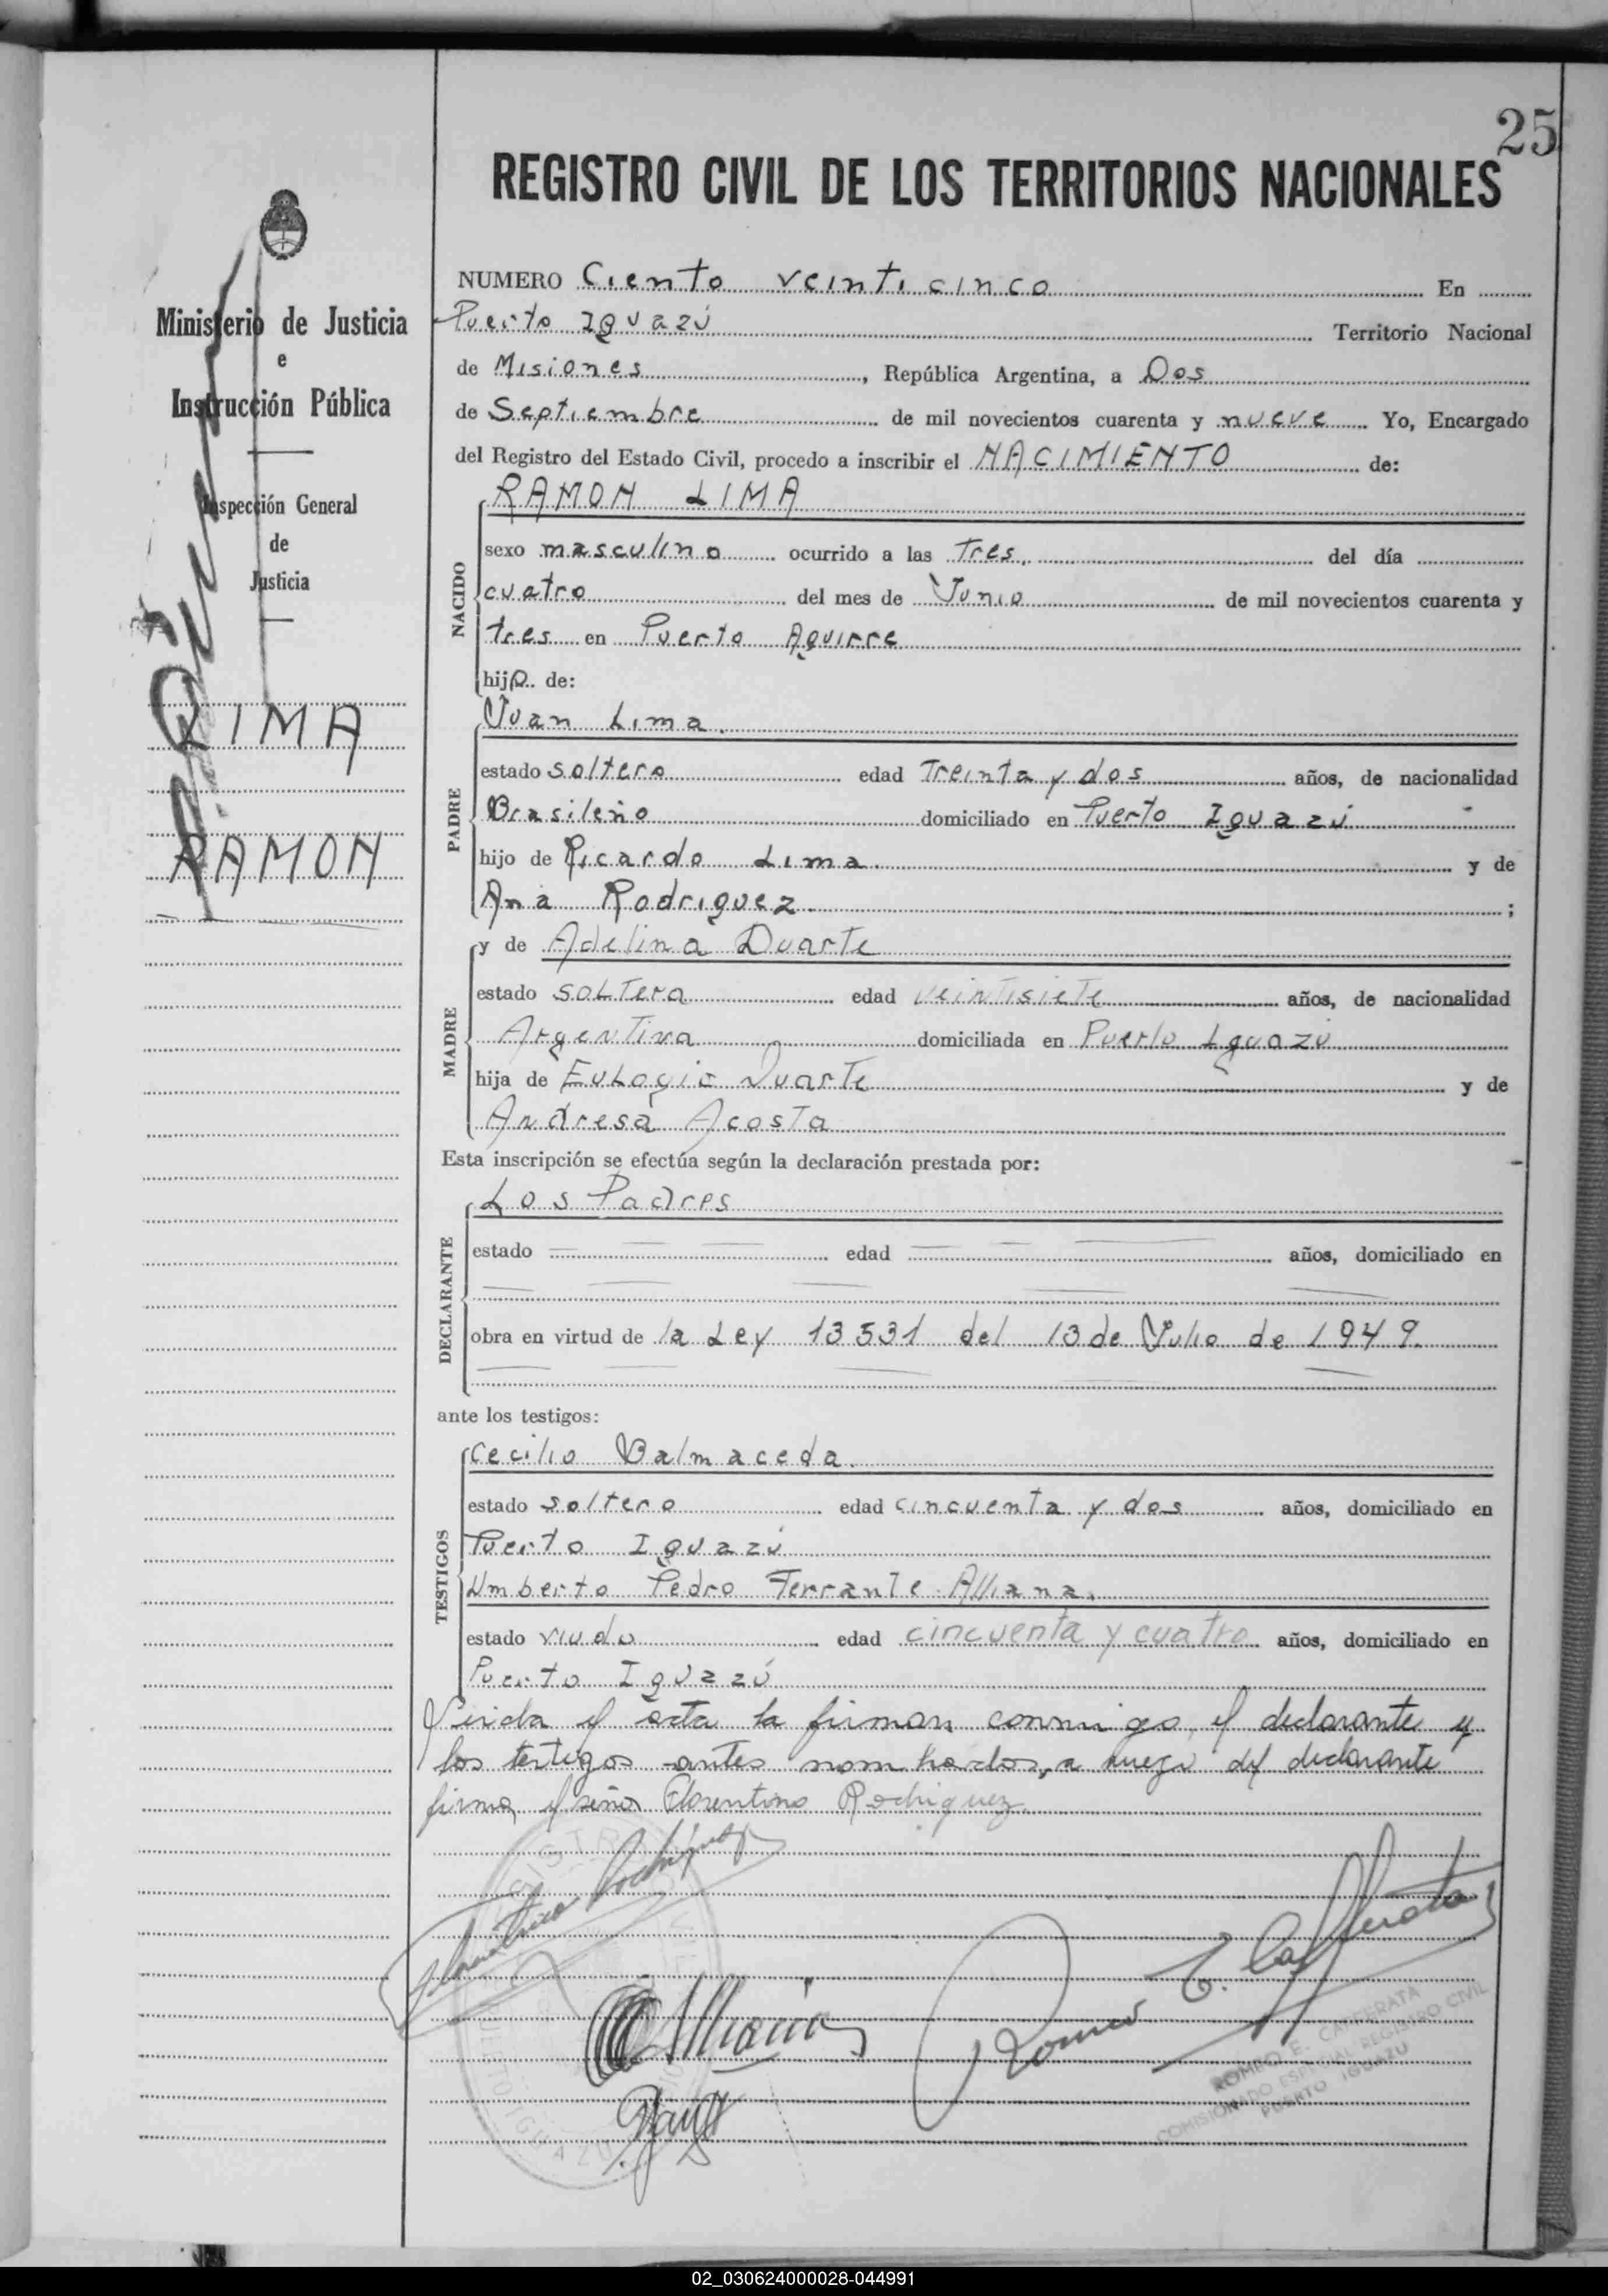 25
REGISTRO CIVIL DE LOS TERRITORIOS NACIONALES
Ministerio de Justicia
e
Instrucción Pública
Inspección General
de
Justicia
LIMA
RAMON
NUMERO Ciento veinti cinco En
Puerto Iguazú Territorio Nacional
de Misiones, República Argentina, a Dos
de Septiembre de mil novecientos cuarenta y nueve Yo, Encargado
del Registro del Estado Civil, procedo a inscribir el NACIMIENTO de:
RAMON LIMA
NACIDO
sexo masculino ocurrido a las Tres. del día
cuatro del mes de Junio de mil novecientos cuarenta y
tres en Puerto Aguirre
hijo de:
PADRE
Juan Lima.
estado soltero edad Treinta y dos años, de nacionalidad
Brasileño domiciliado en Puerto Iguazú
hijo de Ricardo Lima. y de
Ana Rodriguez. ;
MADRE
y de Adelina Duarte
estado solTera edad veintisieTe años, de nacionalidad
ArgenTina domiciliada en Puerto Iguazú
hija de Eulogio DuarTe y de
Andresa AcosTa
Esta inscripción se efectúa según la declaración prestada por:
DECLARANTE
Los Padres
estado edad años, domiciliado en
obra en virtud de la Ley 13531 del 13 de Julio de 1949.
ante los testigos:
TESTIGOS
Cecilio Balmaceda.
estado soltero edad cincuenta y dos años, domiciliado en
Puerto Iguazú
Umberto Pedro Ferrante Alliana.
estado viudo edad cincuenta y cuatro años, domiciliado en
Puerto Iguazú
Leida el acta la firman conmigo, el declarante y
los testigos antes nombrados, a ruego del declarante
firma el señor Florentino Rodriguez.
Florentino Rodriguez
Romeo E. Cafferata
Alliana
ROMEO E. CAFFERATA
COMISIONADO ESPECIAL REGISTRO CIVIL
PUERTO IGUAZU
02_030624000028-044991